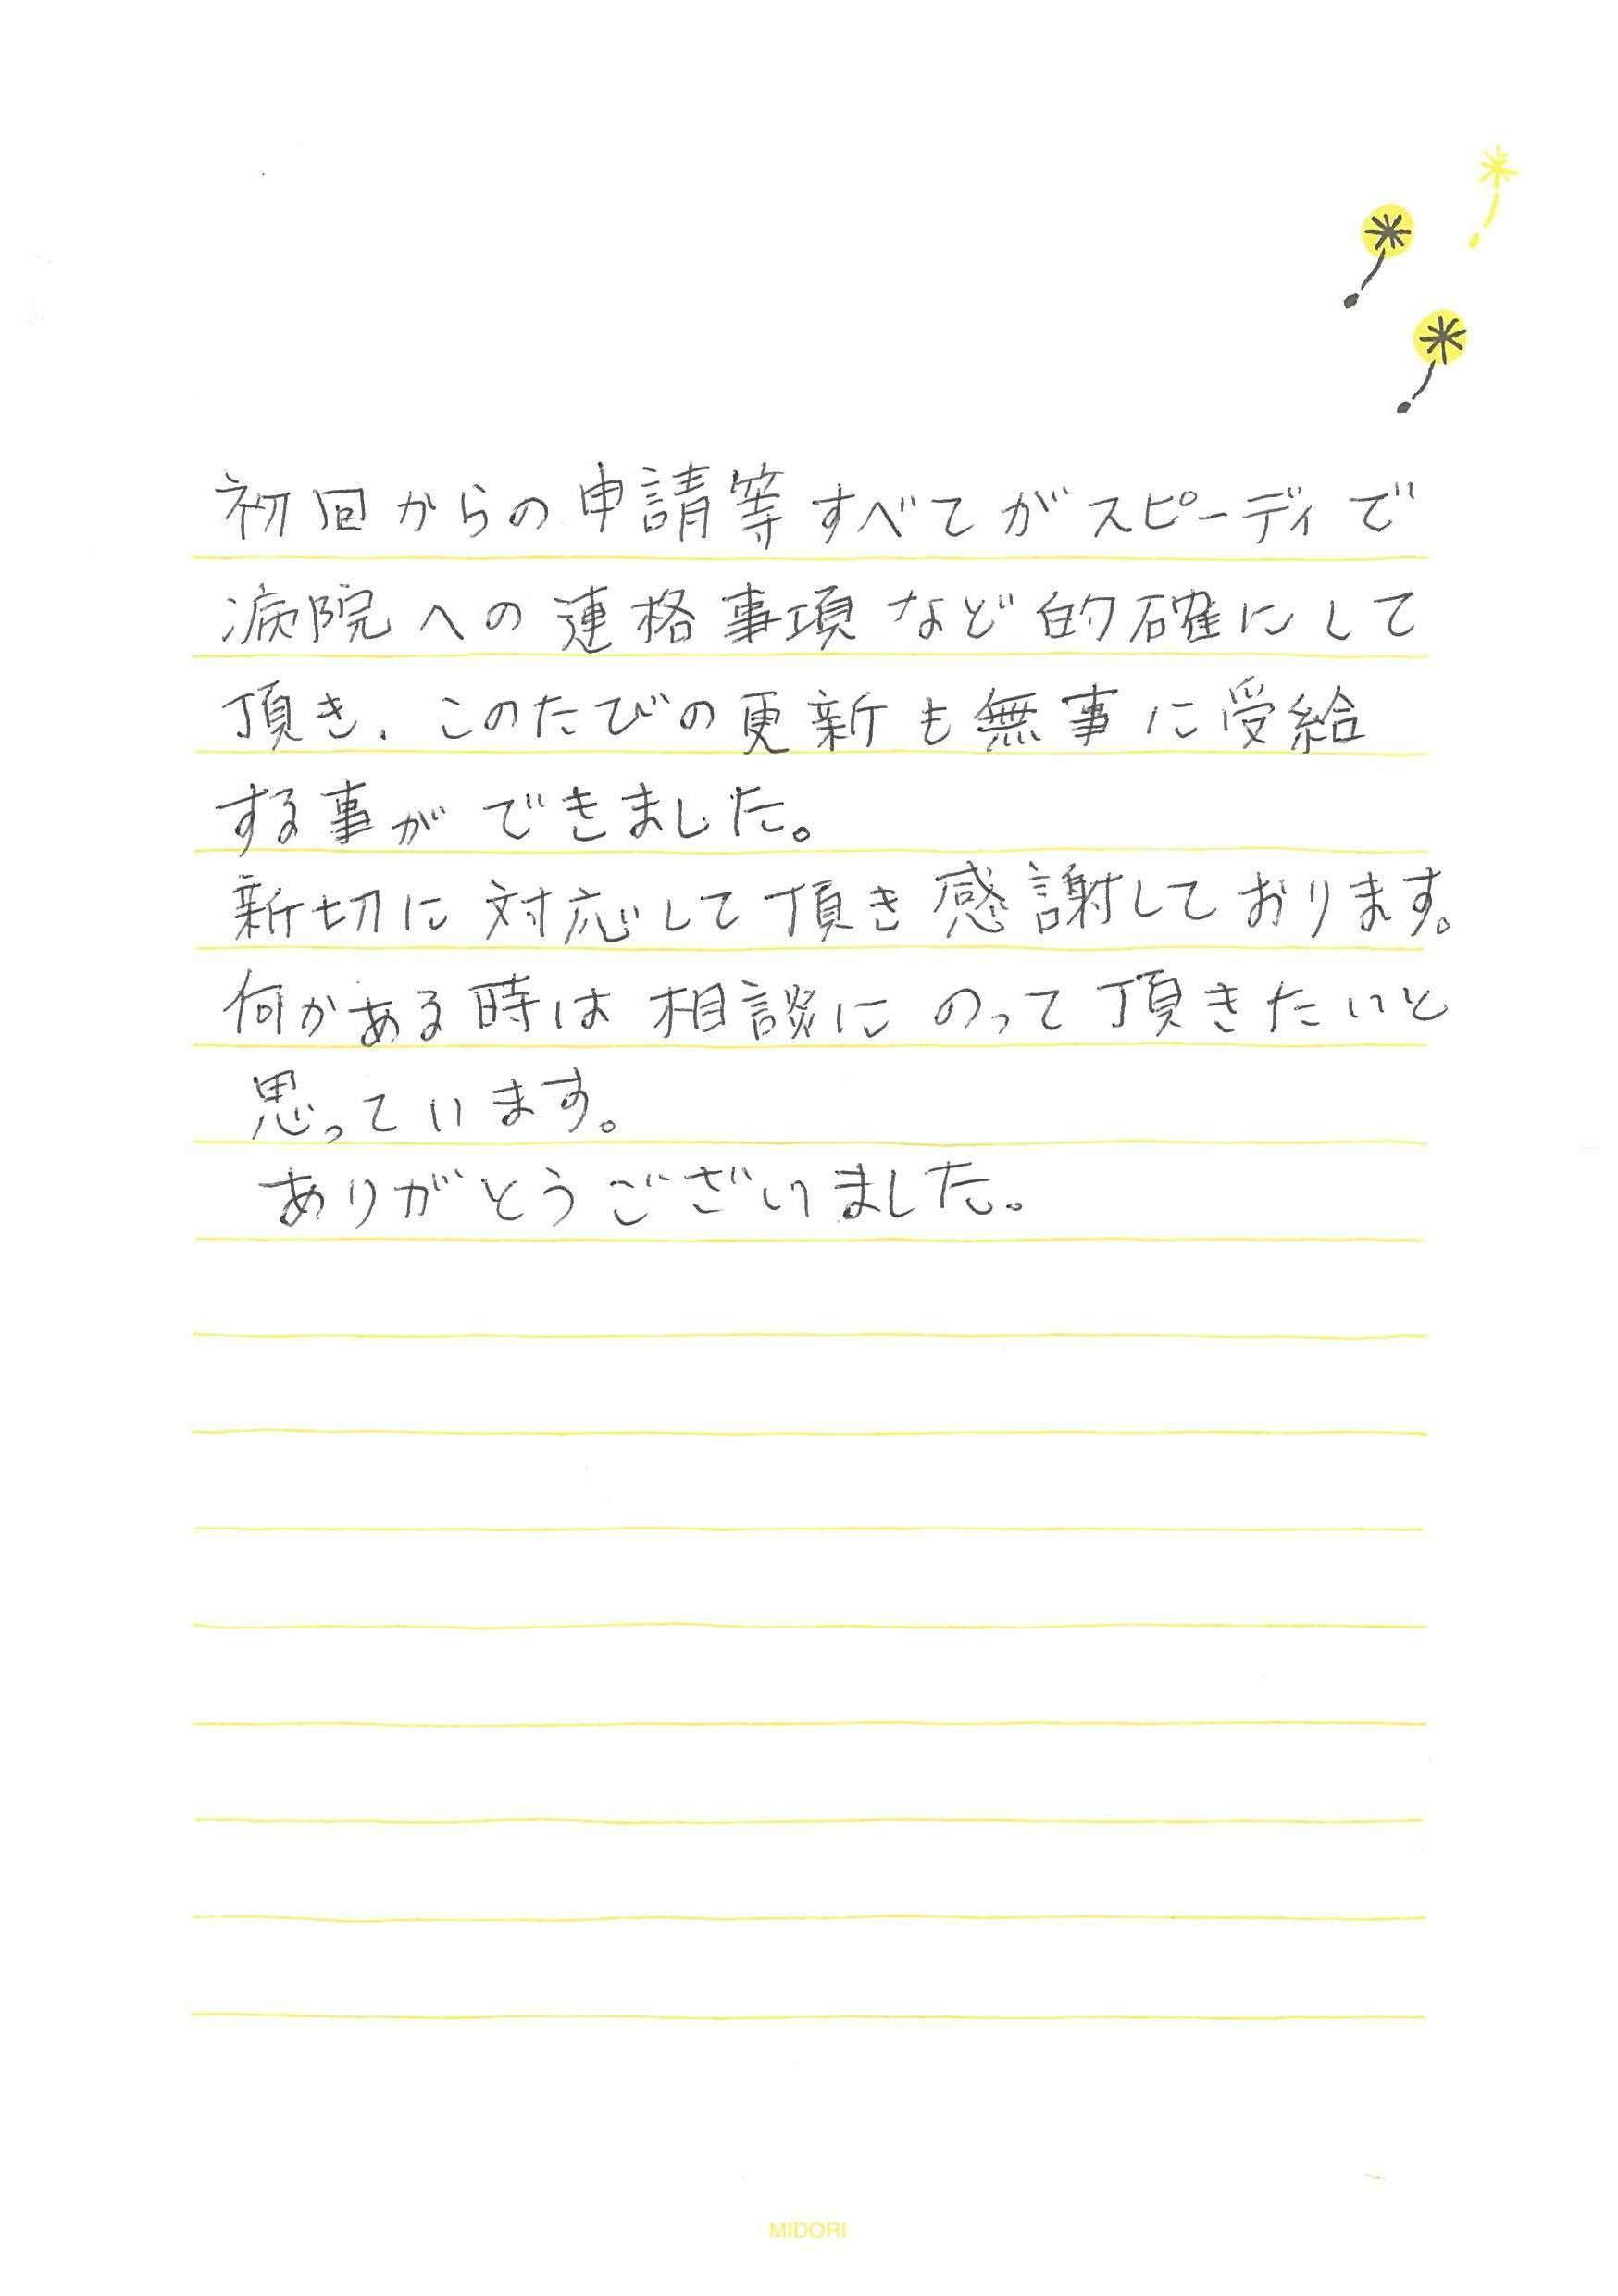 初回からの申請等すべてがスピーディで
病院への連格事項など的確にして
頂き、このたびの更新も無事に受給
する事ができました。
新切に対応して頂き感謝しております。
何かある時は相談にのって頂きたいと
思っています。
ありがとうございました。
MIDORI